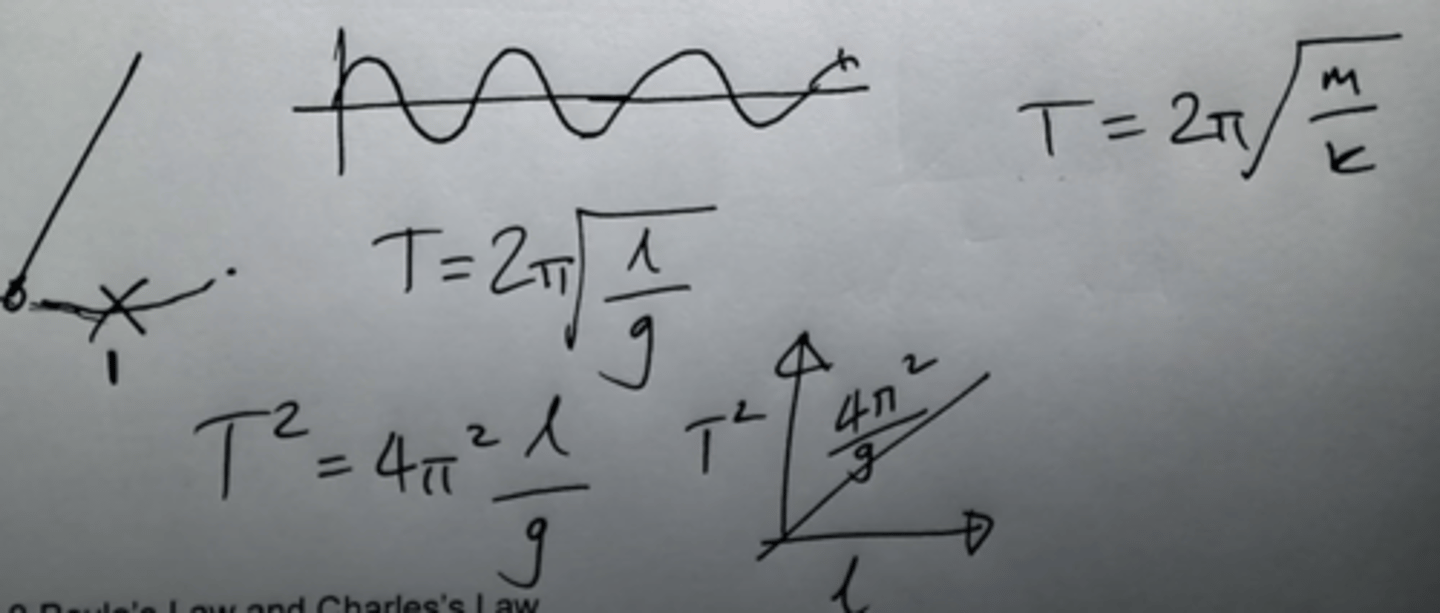 T = 2π√(m/k)
T = 2π√(l/g)
1
T² = 4π² l/g
T²
4π²/g
l
Boyle's Law and Charles's Law